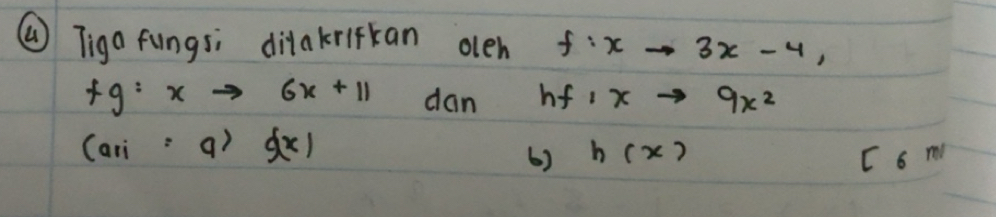 ④ Tiga fungsi ditakrifkan oleh f : x → 3x - 4,
fg : x → 6x + 11 dan hf : x → 9x²
Cari : a) g(x) b) h(x) [6